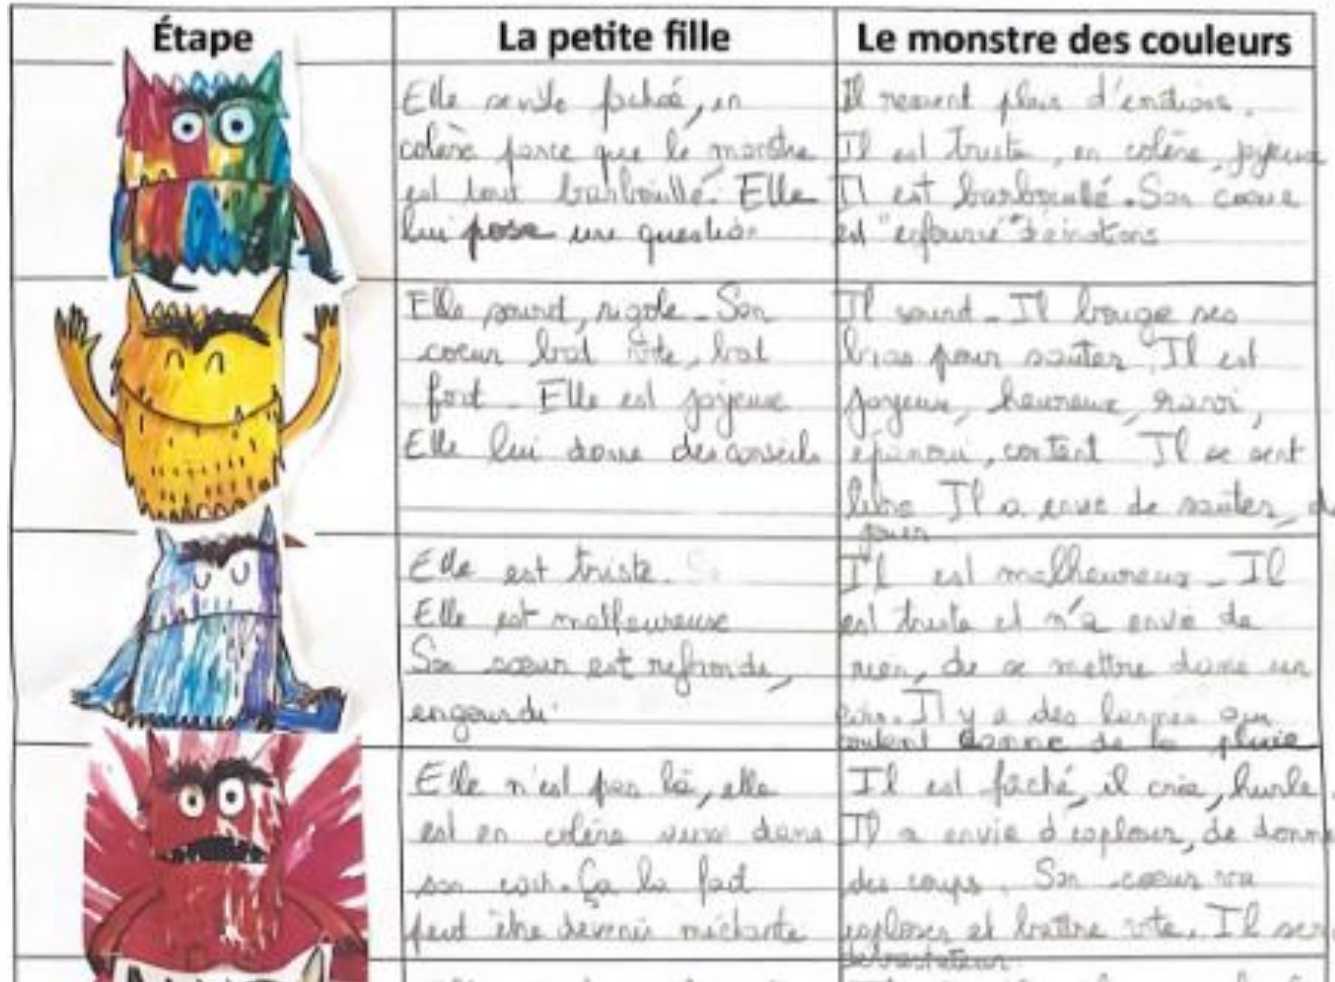 Étape
La petite fille
Le monstre des couleurs
Elle semble fachée, en
colère parce que le monstre
est tout barbouillé. Elle
lui pose une question
Il ressent plein d'émotions.
Il est triste, en colère, joyeux
Il est barbouillé. Son coeur
est "enfourné" d'émotions
Elle sourit, rigole. Son
coeur bat vite, bat
fort. Elle est joyeuse
Elle lui donne des conseils
Il sourit. Il bouge ses
bras pour sauter. Il est
joyeux, heureux, ravi,
épanoui, content. Il se sent
libre Il a envie de sauter, de
jouer
Elle est triste.
Elle est malheureuse
Son coeur est refroidi,
engourdi
Il est malheureux. Il
est triste et n'a envie de
rien, de se mettre dans un
coin. Il y a des larmes qui
coulent comme de la pluie
Elle n'est pas là, elle
est en colère dans
son coin. Ça la fait
peut être devenir méchante
Il est fâché, il crie, hurle.
Il a envie d'exploser, de donner
des coups. Son coeur va
exploser et battre vite. Il sera
dévastateur.